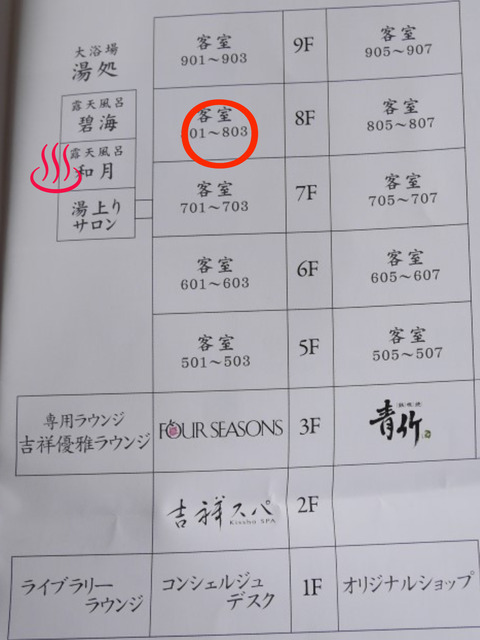 大浴場
湯処
露天風呂
碧海
露天風呂
和月
湯上り
サロン
客室
901～903
9F
客室
905～907
客室
01～803
8F
客室
805～807
客室
701～703
7F
客室
705～707
客室
601～603
6F
客室
605～607
客室
501～503
5F
客室
505～507
専用ラウンジ
吉祥優雅ラウンジ
FOUR SEASONS
3F
青竹
吉祥スパ
Kissho SPA
2F
ライブラリー
ラウンジ
コンシェルジュ
デスク
1F
オリジナルショップ